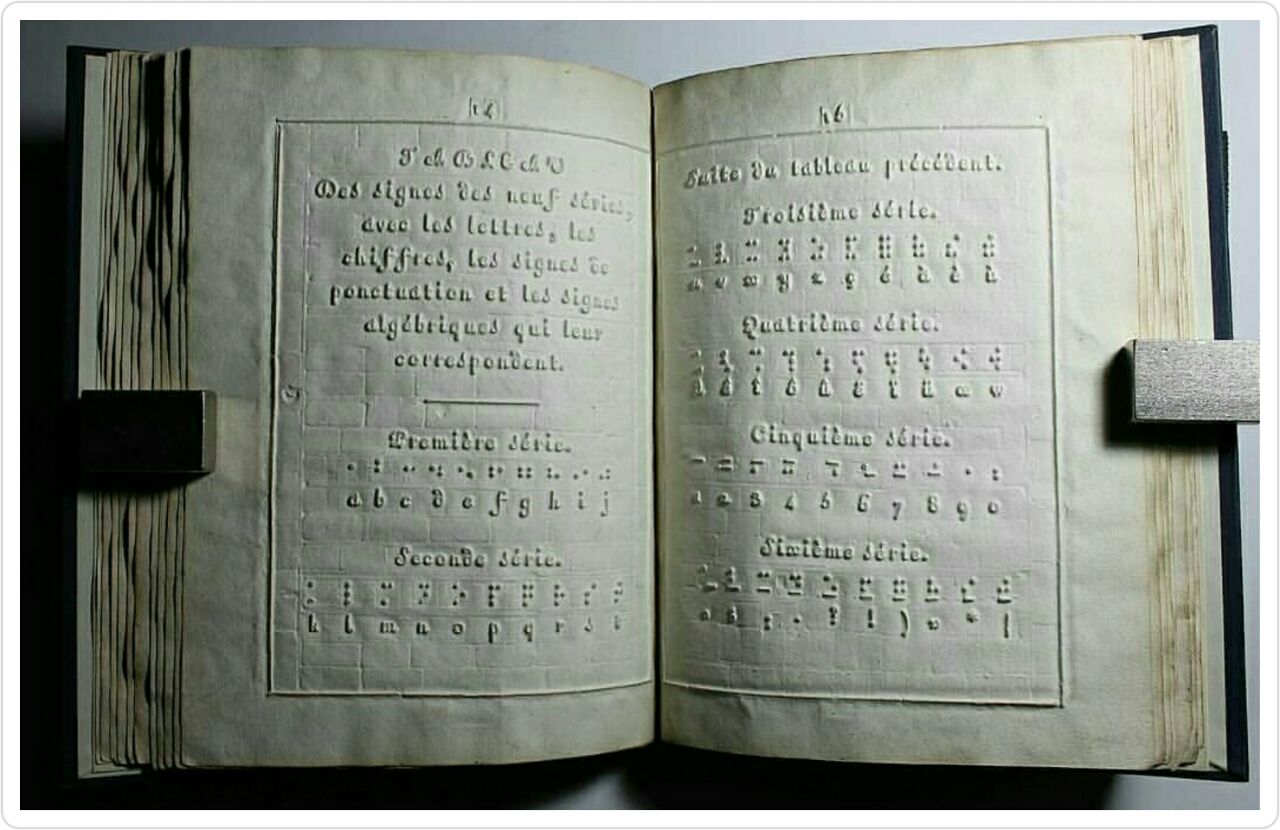 14
TABLEAU
Des signes des neuf séries,
avec les lettres, les
chiffres, les signes de
ponctuation et les signes
algébriques qui leur
correspondent.
Première série.
⠁ ⠃ ⠉ ⠙ ⠑ ⠋ ⠛ ⠓ ⠊ ⠚
a b c d e f g h i j
Seconde série.
⠅ ⠇ ⠍ ⠝ ⠕ ⠏ ⠟ ⠗ ⠎ ⠞
k l m n o p q r s t
16
Suite du tableau précédent.
Troisième série.
⠥ ⠧ ⠭ ⠽ ⠵ ⠯ ⠿ ⠷ ⠮ ⠾
u v x y z ç é à è ù
Quatrième série.
⠡ ⠣ ⠩ ⠹ ⠱ ⠫ ⠻ ⠳ ⠪ ⠺
â ê î ô û ë ï ü œ w
Cinquième série.
1 2 3 4 5 6 7 8 9 0
Sixième série.
? ! ) * (